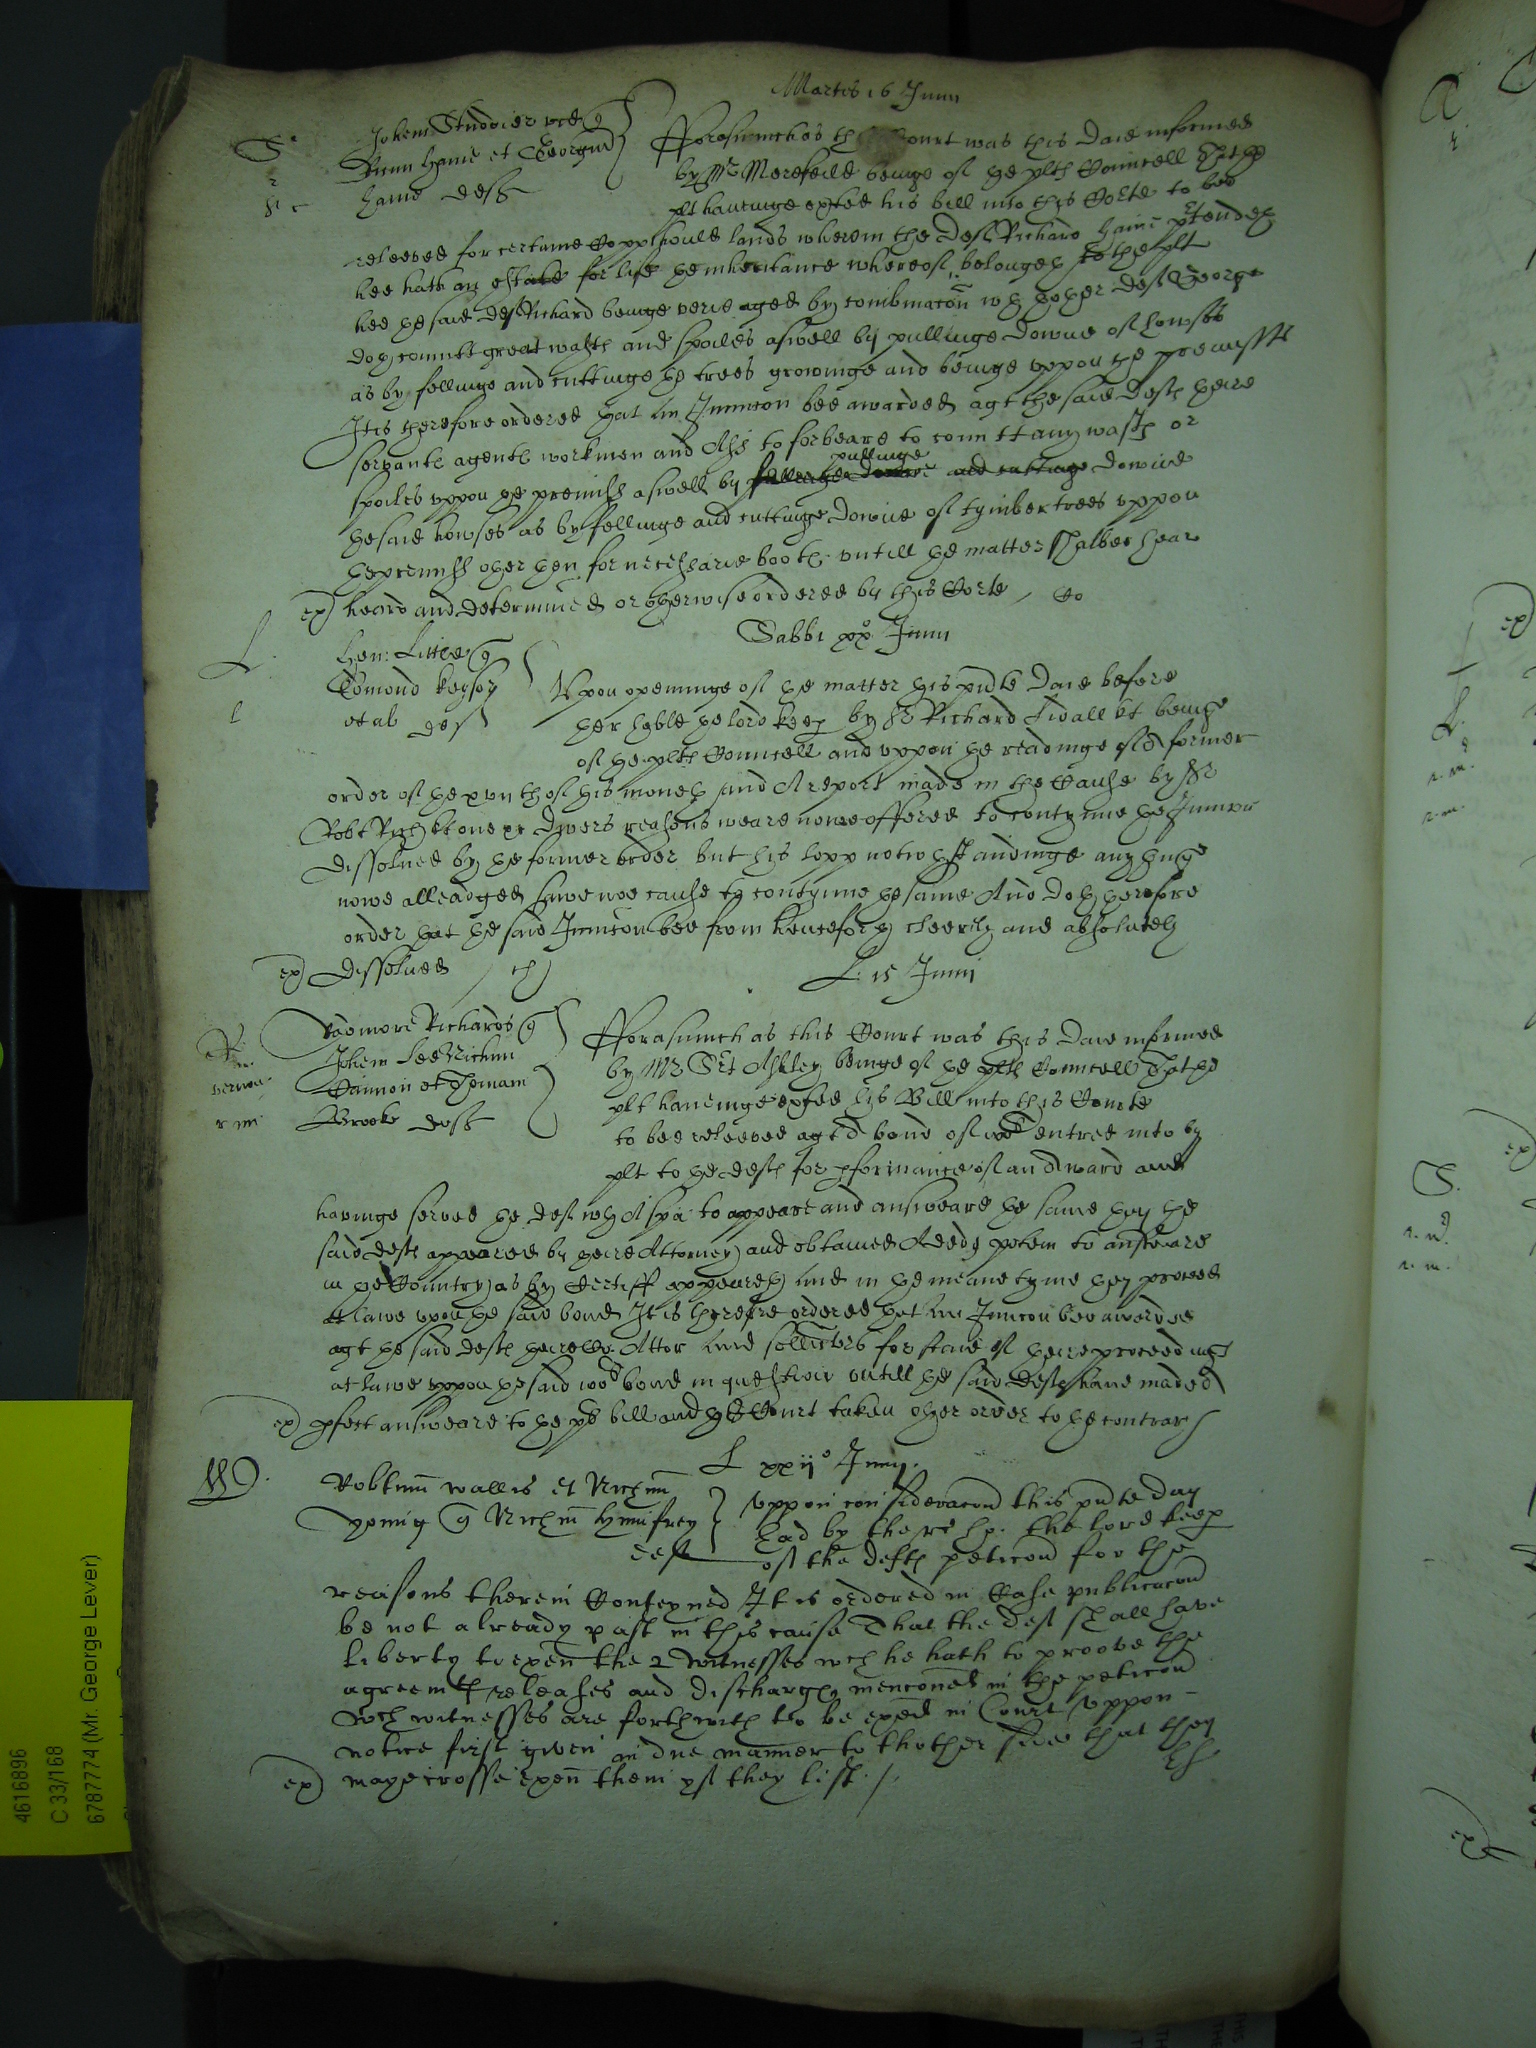 Martis 16 Junii
S
Johem Studdier quer
Ricum hame et Georgiu
hame def
Fforasmuch as th Court was this daie informed
by Mr Merefeild beinge of the plts Councell That the
plt havinge exhted his bill into this Corte to bee
releeved for certaine Coppihould lands wherein the def Richard hame ptendeth
hee hath an estate for life the inheritance whereof belongeth to the plt
hee the said def Richard beinge verie aged by combinacon wth thother def George
doth committ great wasts and spoiles aswell by pullinge downe of howses
as by fellinge and cuttinge the trees growinge and beinge uppon the premisses
It is therefore ordered that an Iniunccon bee awarded agt the said defts their
servants agents workmen and Ass to forbeare to committ any wasts or
spoiles uppon the premiss aswell by pullinge downe
the said howses as by fellinge and cuttinge downe of tymber trees uppon
the premiss other then for necessarie boots untill the matter shalbee hear
ex) heard and determined or otherwise ordered by this Corte
Sabbi xxo Junii
L
Hen: Little quer
Edmond keysor
et al def
Upon openinge of the matter this pnte daie before
the right hoble the lord keep by Sr Richard Tidall kt beinge
of the plts Councell and uppon the readinge of a former
order of the xvnth of this moneth and A report made in the Cause by Sr
Robt Rich kt one &c Divers reasons weare nowe offered to contynue the Iniunccon
dissolved by the former order but his lopp notwthstandinge any thinge
nowe alleadged sawe noe cause to contynue the same And doth therefore
order that the said Iniunccon bee from henceforth cleerely and absolutely
ex) dissolved
L 15 Junii
R
Radmore Richards quer
Johem Lee Richum
Cannon et Thomam
Brooke def
Fforasmuch as this Court was this daie informed
by Mr Sert Ashley beinge of the plts Councell That the
plt havinge exhted his Bill into this Courte
to bee releeved agt a bond of entred into by
plt to the defts for pformance of an Award and
havinge served the def wth A spa to appeare and answeare the same they the
said defts appeared by their Attorney and obtained A dedi potem to answeare
in the Country as by Certiff appeareth And in the meane tyme they proceed
at lawe upon the said bond It is therefore ordered that an Iniunccon bee awarded
agt the said defts their Attor and sollicitors for staie of their proceedings
at lawe uppon the said bond in question untill the said defts have made a
ex) pfect answeare to the plts bill and the Court taken other order to the contrary
L xxiio Junii
W
Robtum wallis et Richum
yonng quer Richm humfrey
def
Uppon consideracon this pnte day
had by the right ho. the lord keep
of the defts peticon for the
reasons therein Conteyned It is ordered in Case publicacon
be not already past in this cause That the def shall have
liberty to exen the 2 witnesses wch he hath to proove the
agreemt releases and discharges menconed in the peticon
Wch witnesses are forthwith to be exed in Court Uppon
notice first given in due manner to thother side that they
ex) maye crosse exen them yf they list
4616896
C 33/168
6787774 (Mr. George Lever)